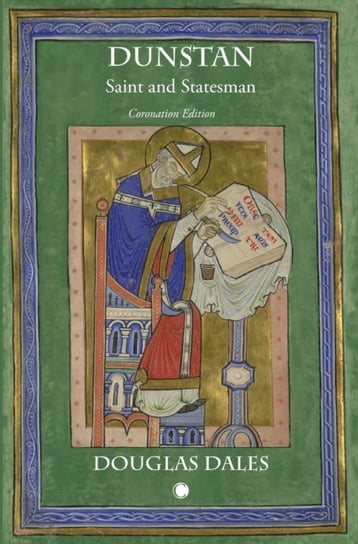 DUNSTAN
Saint and Statesman
Coronation Edition
DOUGLAS DALES